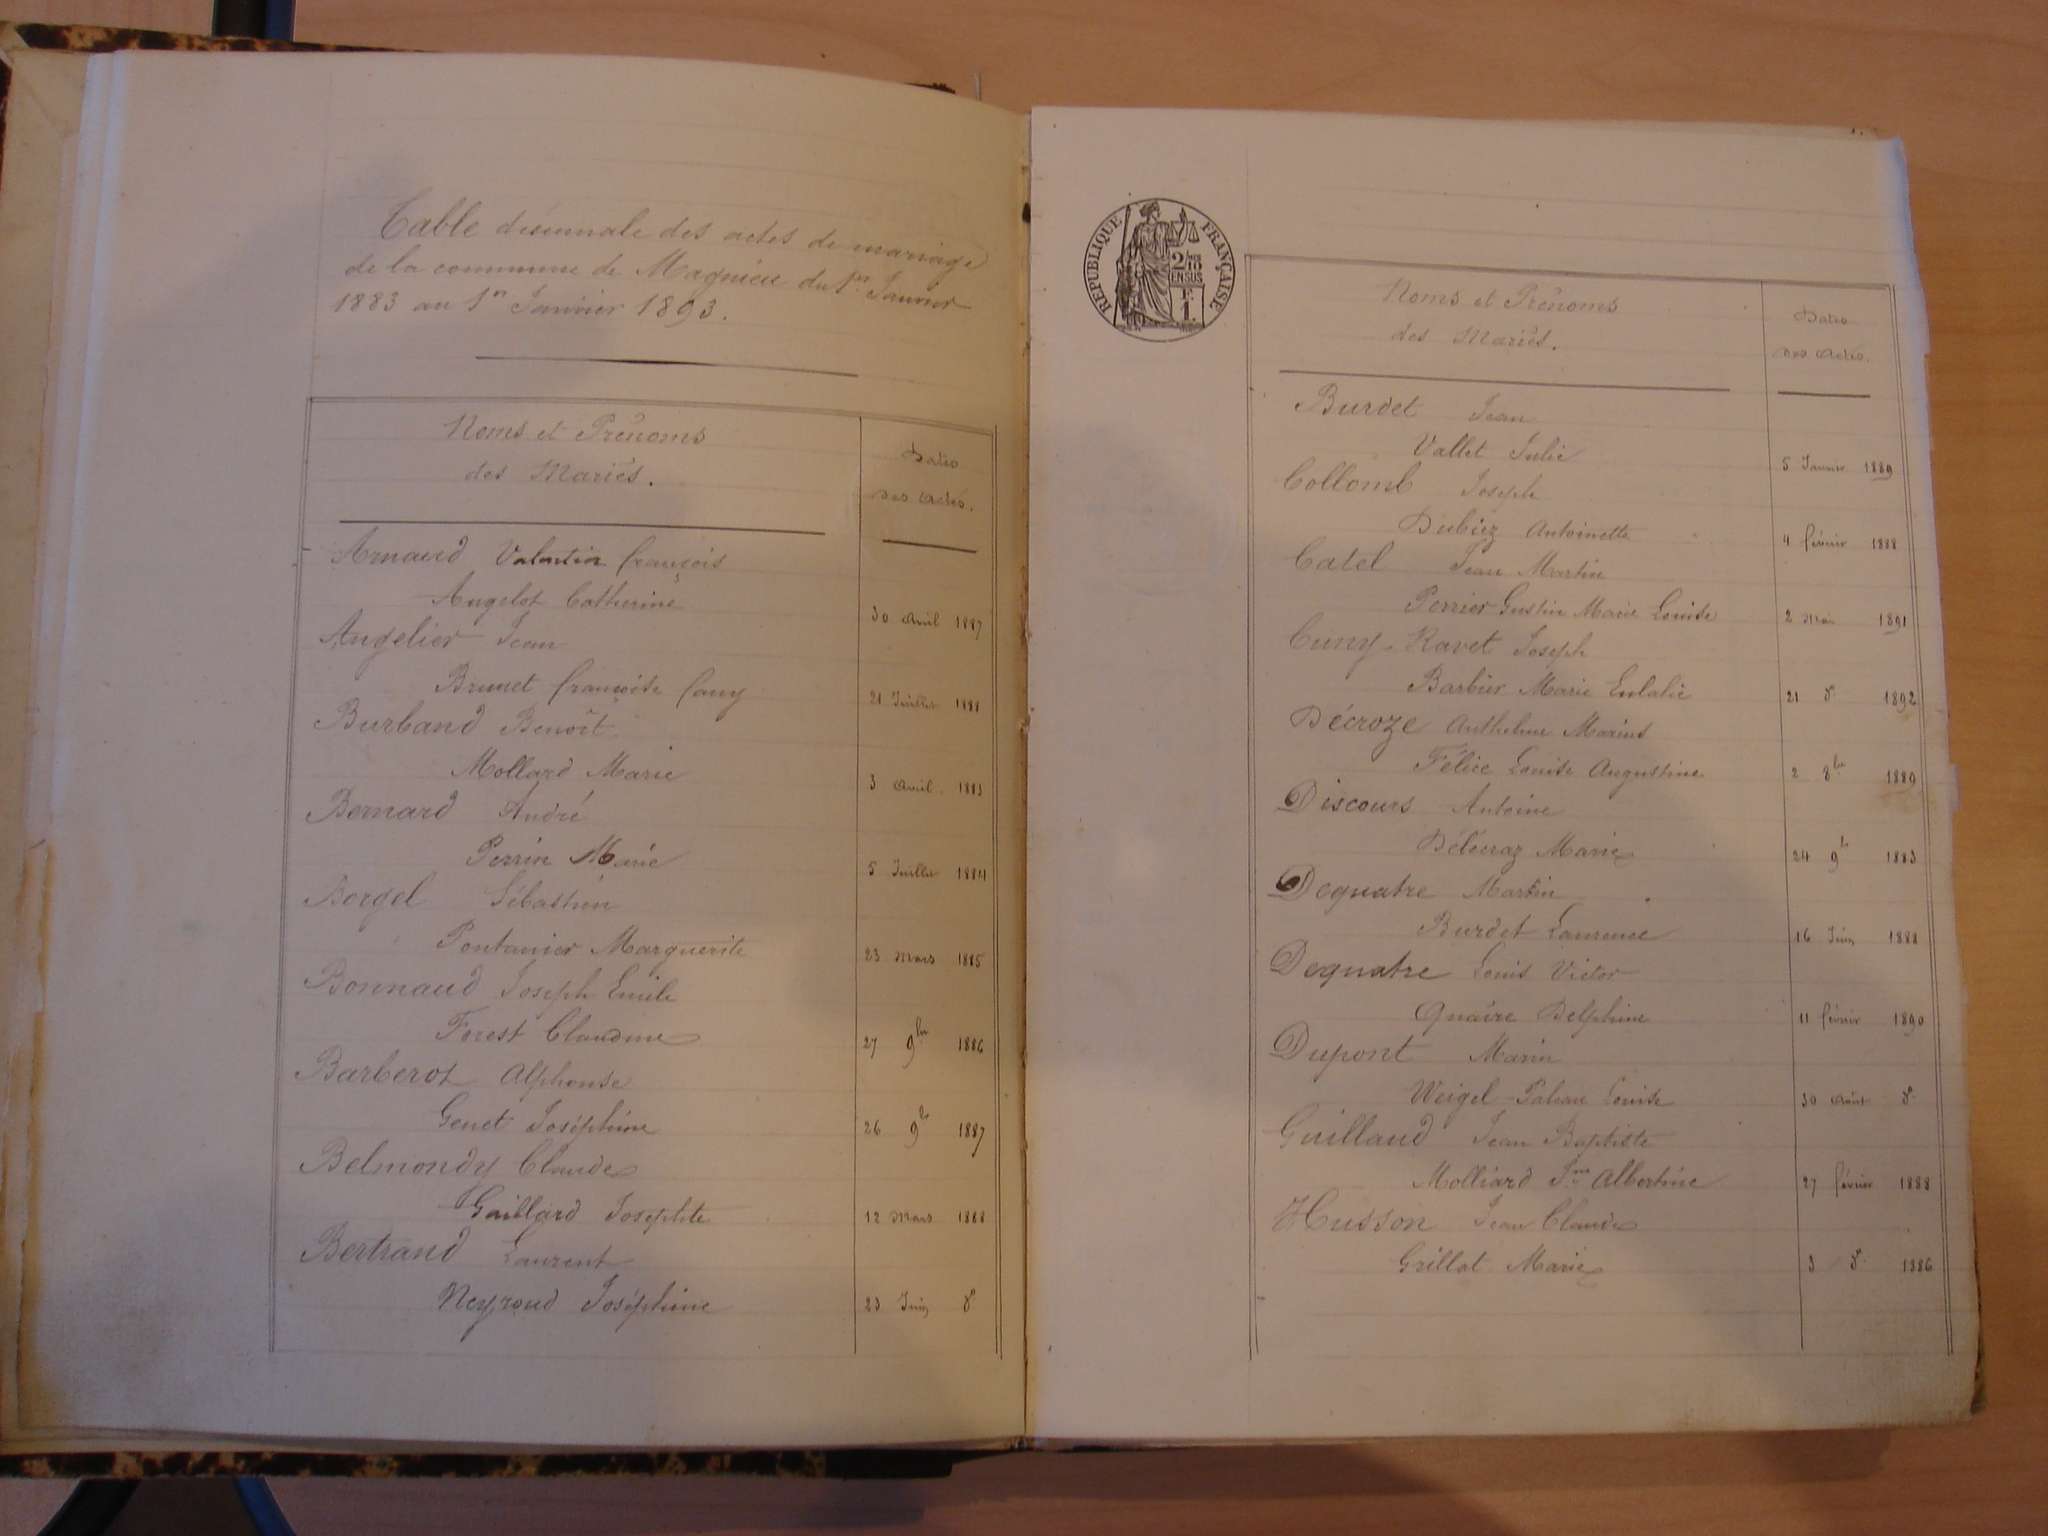 Table décennale des actes de mariage
de la commune de Magnieu du 1er Janvier
1883 au 1er Janvier 1893.
Noms et Prénoms
des Mariés.
Dates
des Actes.
Arnaud Valentin françois
Angelot Catherine 30 Avril 1887
Angelier Jean
Brunet françoise fany 21 Juillet 1888
Burband Benoît
Mollard Marie 3 Avril 1883
Bernard André
Perrin Marie 5 Juillet 1884
Borgel Sébastien
Pontanier Marguerite 23 Mars 1885
Bonnaud Joseph Emile
Forest Claudine 27 9bre 1886
Barberot Alphonse
Genet Joséphine 26 9bre 1887
Belmondy Claude
Gaillard Josephte 12 Mars 1888
Bertrand Laurent
Neyroud Joséphine 23 Juin do
RÉPUBLIQUE FRANÇAISE
2/10
EN SUS
1 F.
Noms et Prénoms
des Mariés.
Dates
des Actes.
Burdet Jean
Vallet Julie 5 Janvier 1889
Collomb Joseph
Dubiez Antoinette 4 février 1888
Catel Jean Martin
Perrier Gustin Marie Louise 2 Mai 1891
Cuny-Ravet Joseph
Barbier Marie Eulalie 21 do 1892
Décroze Anthelme Marius
Félice Louise Augustine 2 8bre 1889
Discours Antoine
Délécraz Marie 24 9bre 1883
Dequatre Martin
Burdet Laurence 16 Juin 1888
Dequatre Louis Victor
Quaire Delphine 11 février 1890
Dupont Marin
Weigel Louise 30 Août do
Guillaud Jean Baptiste
Molliard Jne Albertine 27 février 1888
Husson Jean Claude
Grillot Marie 3 do 1886